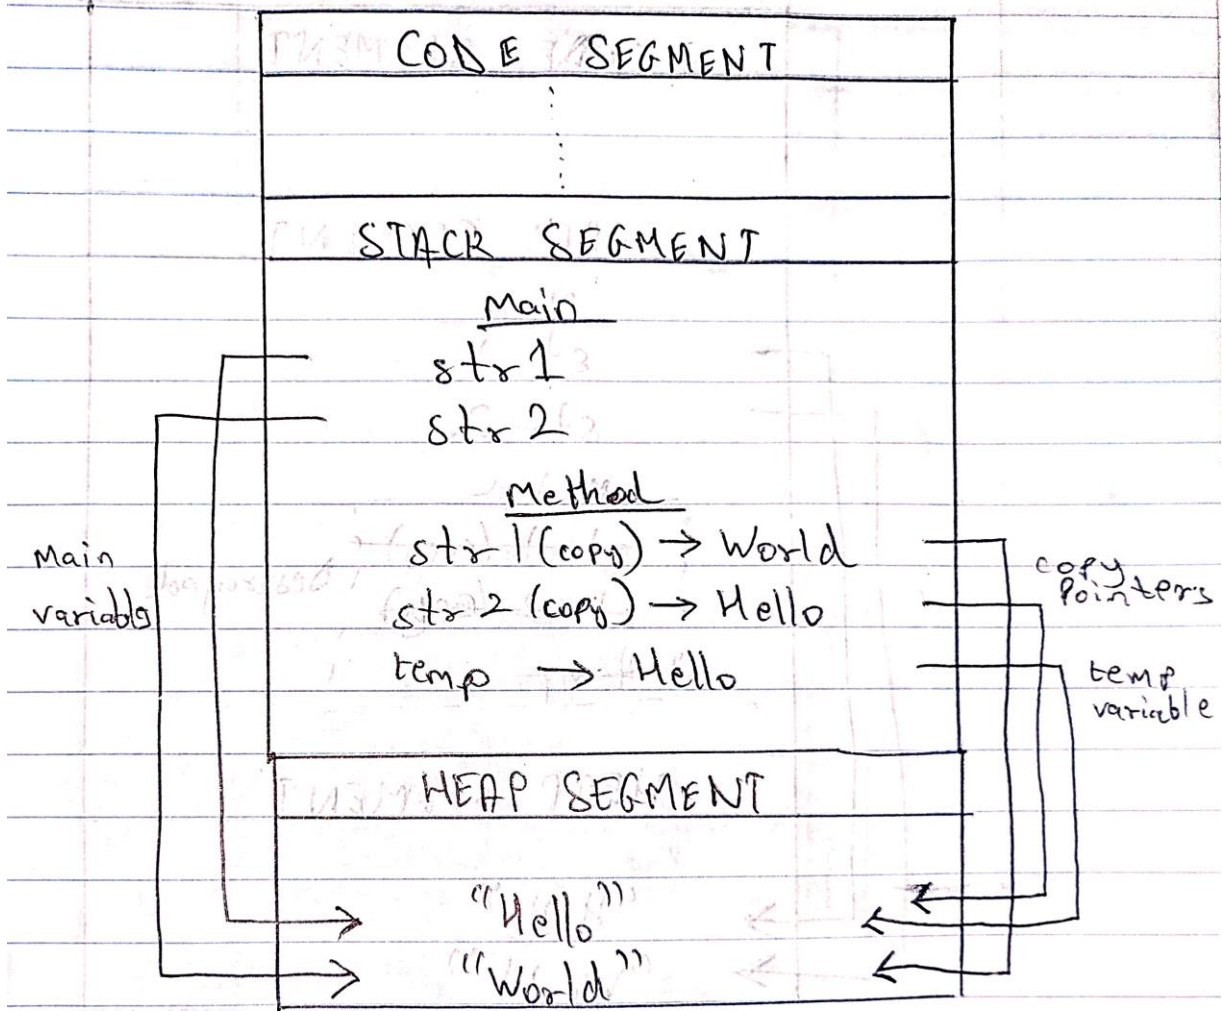 CODE SEGMENT
STACK SEGMENT
Main
str1
str2
Method
str1(copy) → World
str2(copy) → Hello
temp → Hello
Main
variable
copy
Pointers
temp
variable
HEAP SEGMENT
"Hello"
"World"